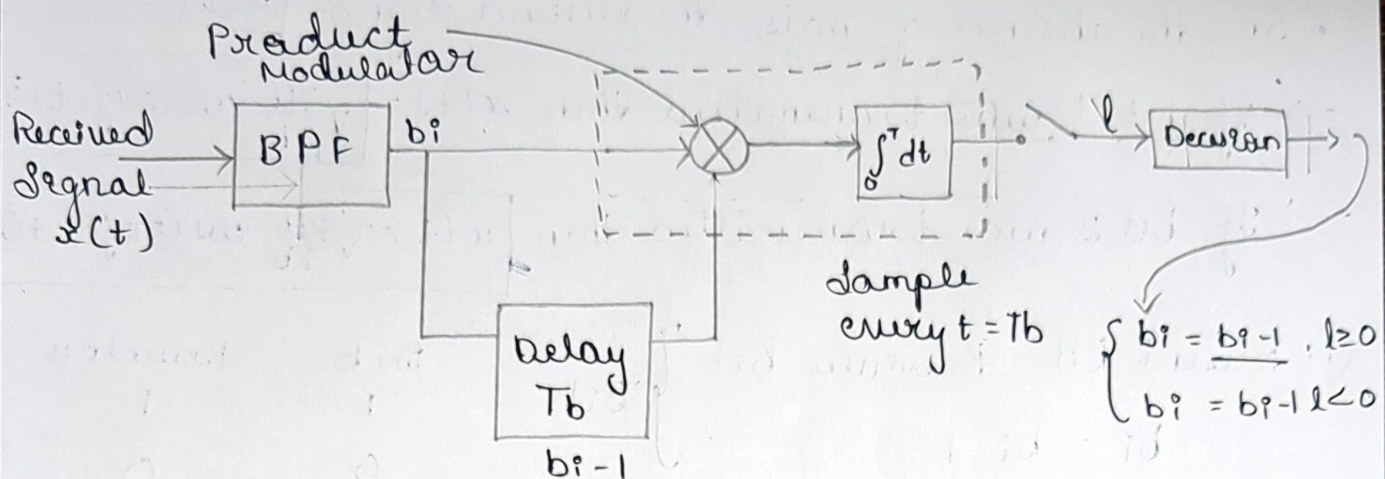 Product
Modulator
Received
Signal
x(t)
BPF
bi
∫₀ᵀ dt
l
Decision
Sample
every t = Tb
Delay
Tb
bi-1
{ bi = bi-1 , l≥0
bi = bi-1 l<0